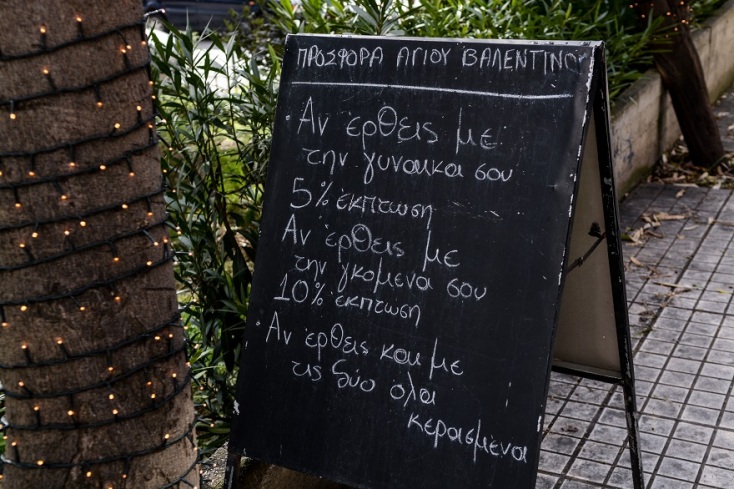 ΠΡΟΣΦΟΡΑ ΑΓΙΟΥ ΒΑΛΕΝΤΙΝΟΥ
· Αν έρθεις με
την γυναικα σου
5% έκπτωση
Αν έρθεις με
την γκομενα σου
10% έκπτωση
· Αν έρθεις και με
τις δύο όλα
κερασμένα